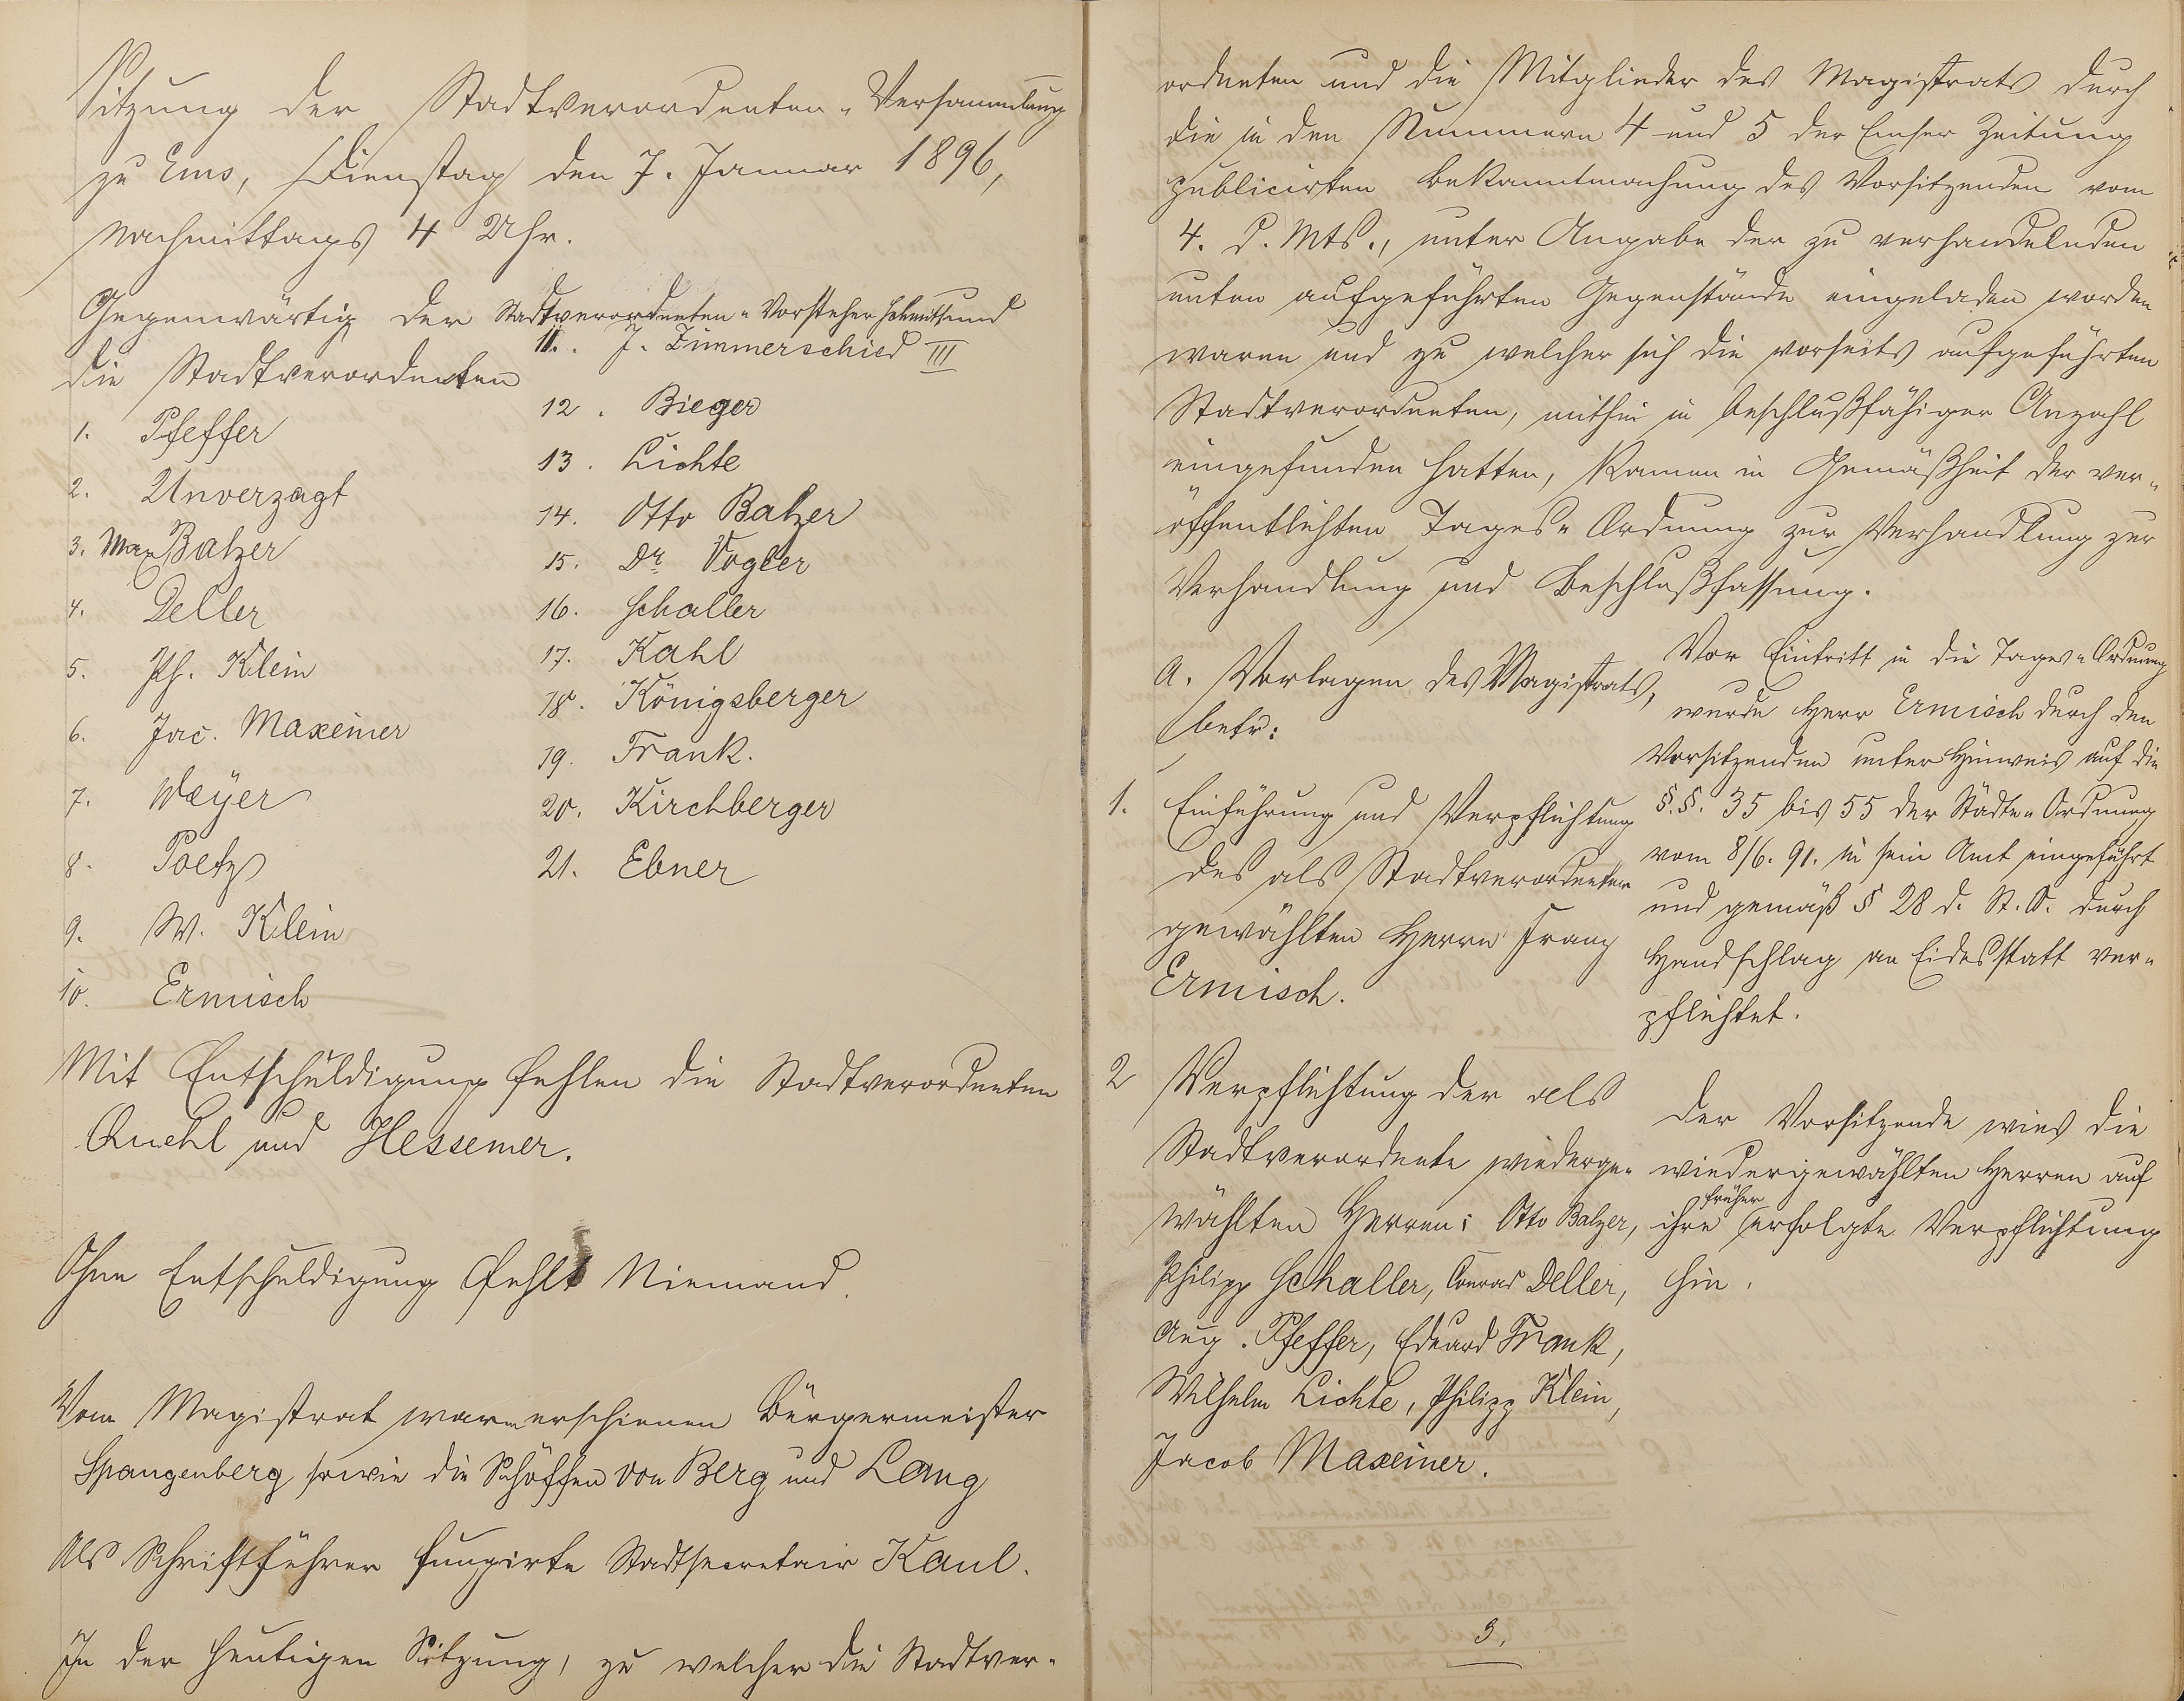 Sitzung der Stadtverordneten-Versammlung
zu Ems, Dienstag den 7. Januar 1896,
Nachmittags 4 Uhr.
Gegenwärtig der Stadtverordneten-Vorsteher Schmitt und
die Stadtverordneten
1. Pfeffer
2. Unverzagt
3. Max Balzer
4. Deller
5. Ph. Klein
6. Jac. Maxeiner
7. Weyer
8. Poetz
9. W. Klein
10. Ermisch
11. J. Zimmerschied III
12. Bieger
13. Lichte
14. Otto Balzer
15. Dr. Vogler
16. Schaller
17. Kahl
18. Königsberger
19. Frank.
20. Kirchberger
21. Ebner
Mit Entschuldigung fehlen die Stadtverordneten
Quehl und Hessemer.
Ohne Entschuldigung fehlt Niemand.
Vom Magistrat waren erschienen Bürgermeister
Spangenberg sowie die Schöffen von Berg und Lang
Als Schriftführer fungirte Stadtsecretair Kaul.
In der heutigen Sitzung, zu welcher die Stadtver-
ordneten und die Mitglieder des Magistrats durch
die in den Nummern 4 und 5 der Emser Zeitung
publicirten Bekanntmachung des Vorsitzenden vom
4. d. Mts., unter Angabe der zu verhandelnden
unten aufgeführten Gegenstände eingeladen worden
waren und zu welcher sich die vorseits aufgeführten
Stadtverordneten, mithin in beschlußfähiger Anzahl
eingefunden hatten, kamen in Gemäßheit der ver-
öffentlichten Tages-Ordnung zur Verhandlung zur
Verhandlung und Beschlußfassung.
A. Vorlagen des Magistrats,
betr:
1. Einführung und Verpflichtung
des als Stadtverordneter
gewählten Herrn Franz
Ermisch.
Vor Eintritt in die Tages-Ordnung
wurde Herr Ermisch durch den
Vorsitzenden unter Hinweis auf die
§.§. 35 bis 55 der Städte-Ordnung
vom 8/6. 91. in sein Amt eingeführt
und gemäß § 28 d. St. O. durch
Handschlag an Eidesstatt ver-
pflichtet.
2 Verpflichtung der als
Stadtverordnete wiederge-
wählten Herren: Otto Balzer,
Philipp Schaller, Conrad Deller,
Aug. Pfeffer, Eduard Frank,
Wilhelm Lichte, Philipp Klein,
Jacob Maxeiner.
Der Vorsitzende wies die
wiedergewählten Herren auf
früher
ihre erfolgte Verpflichtung
hin.
3.